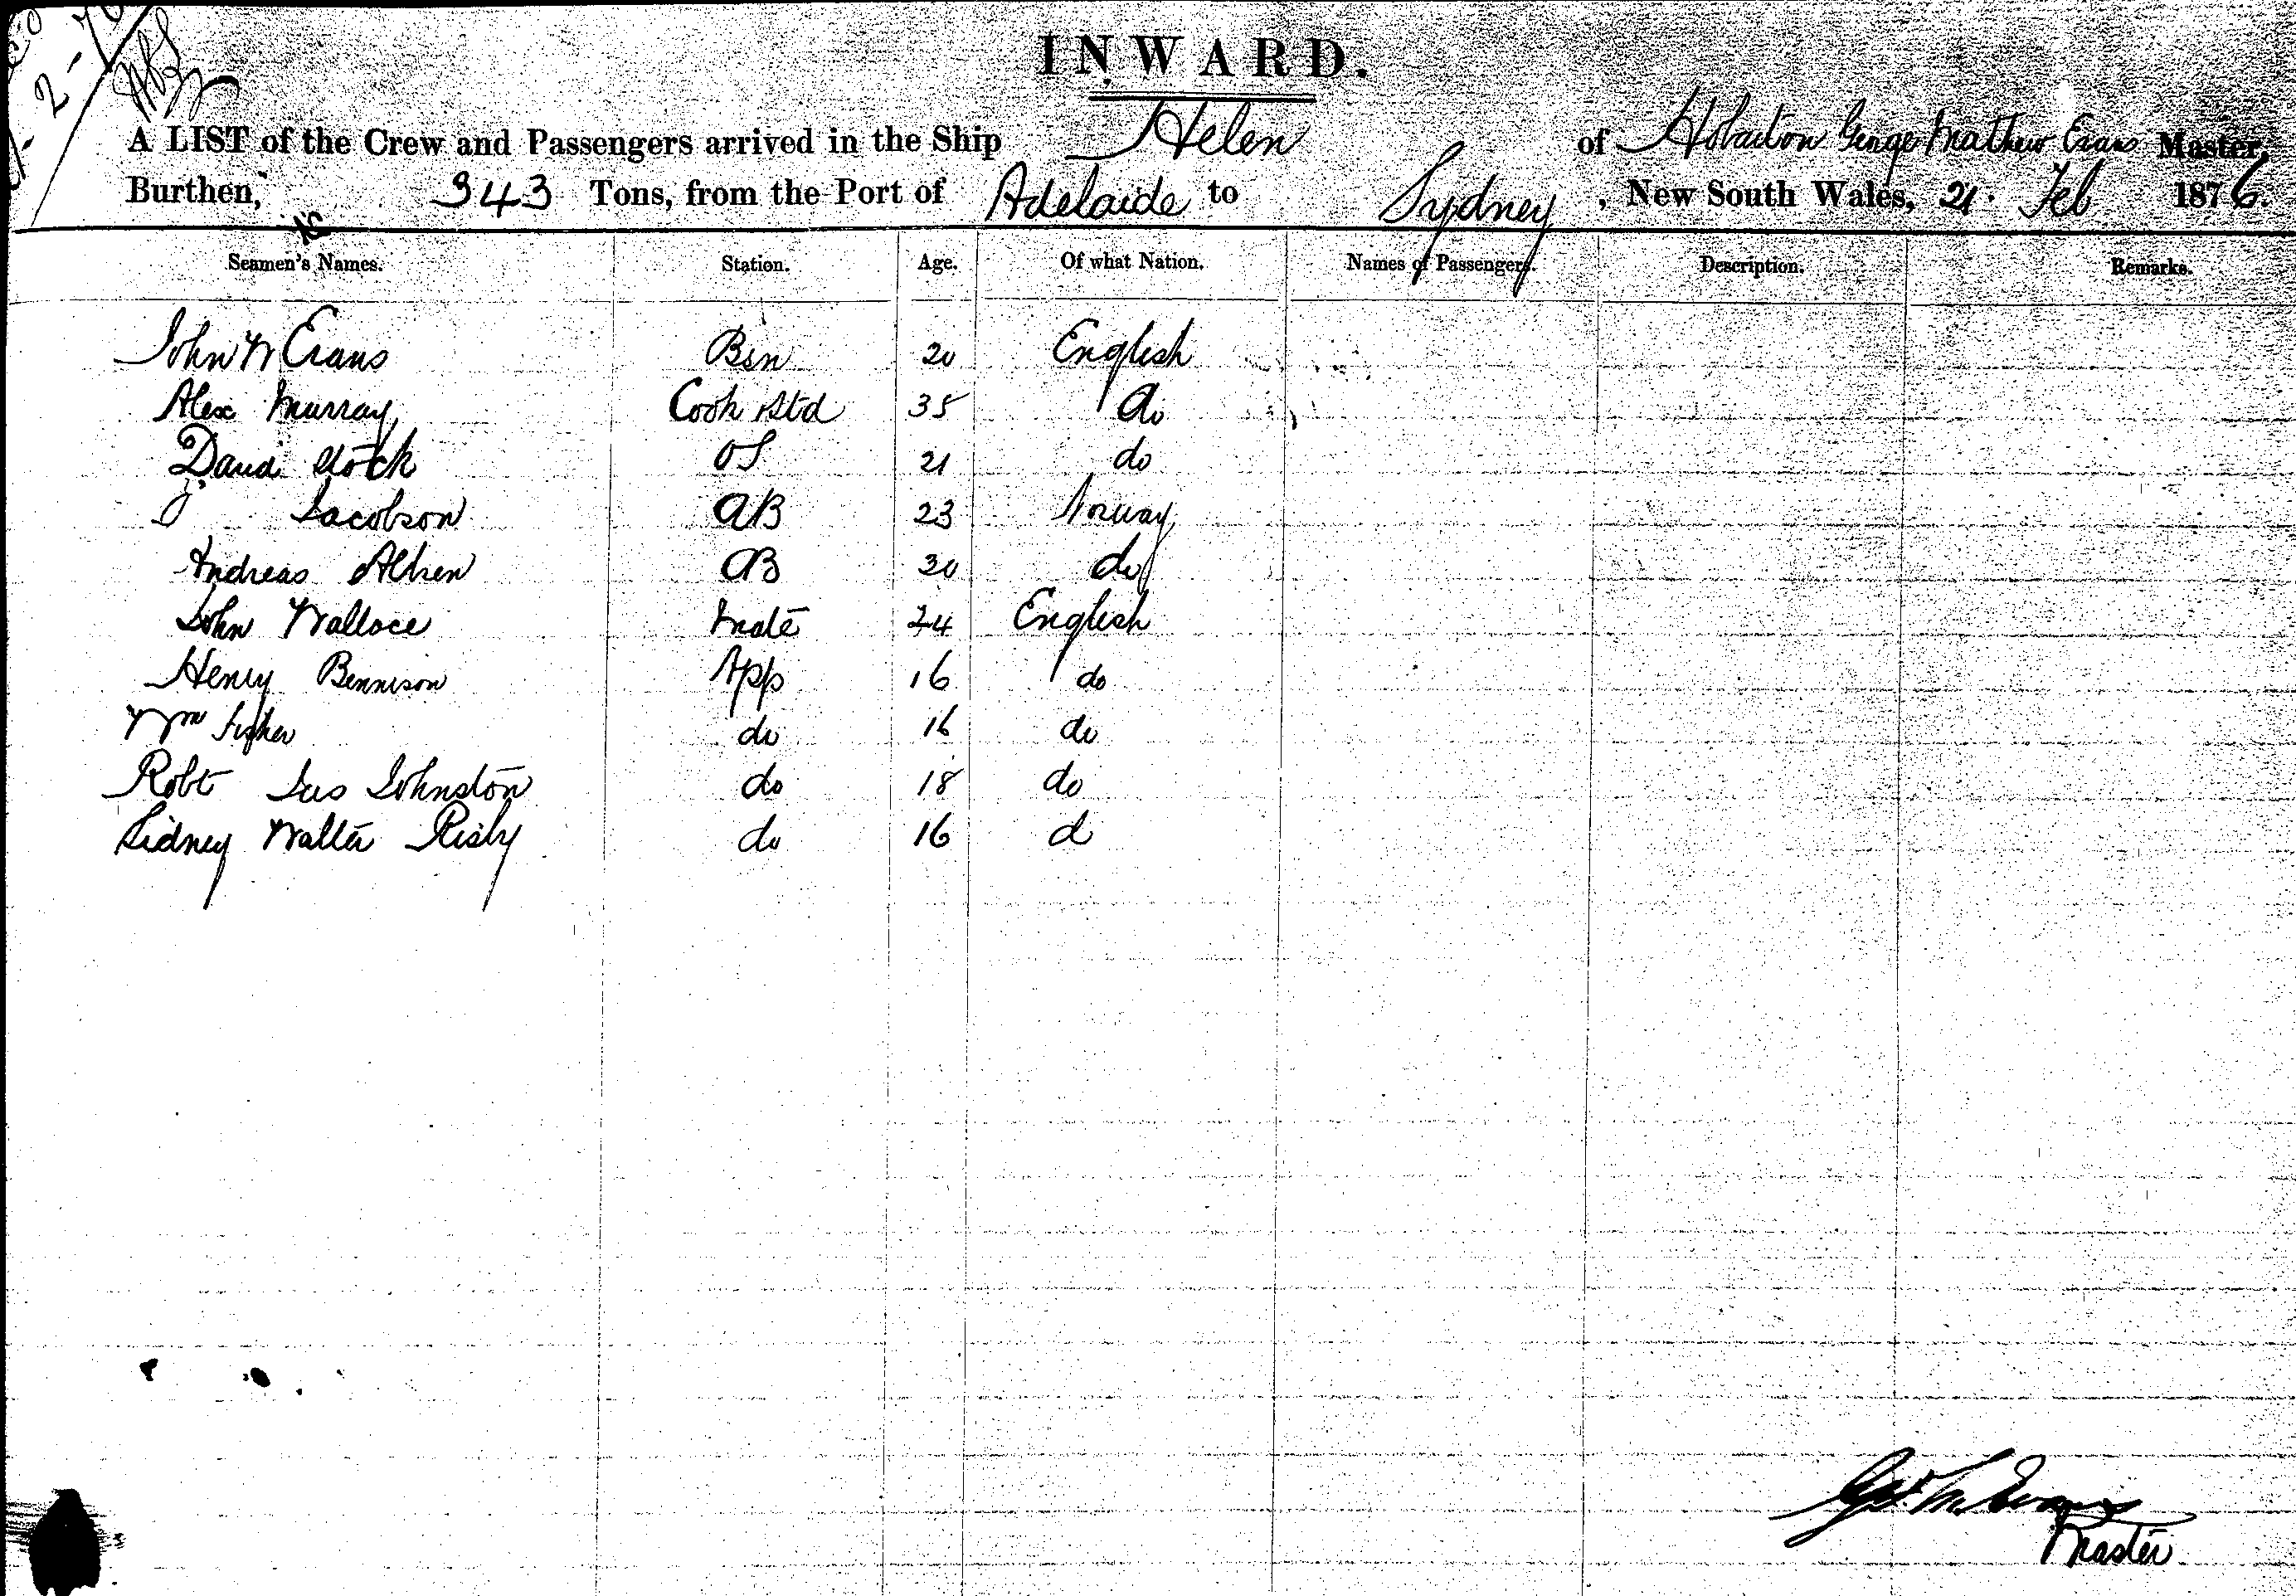 2-
INWARD.
A LIST of the Crew and Passengers arrived in the Ship Helen of Hobarton George Mathew Evans Master,
Burthen, 343 Tons, from the Port of Adelaide to Sydney, New South Wales, 21. Feb 1876.
Seamen's Names. Station. Age. Of what Nation. Names of Passengers. Description. Remarks.
John W Evans Bsn 20 English
Alex Murray Cook Std 35 do
David Stock OS 21 do
J Jacobson AB 23 Norway
Andreas AB 30 do
John Wallace Mate 24 English
Henry Bennison App 16 do
Wm Fisher do 16 do
Robt Jas Johnston do 18 do
Sidney Walter Risby do 16 d
Geo. M. Evans
Master